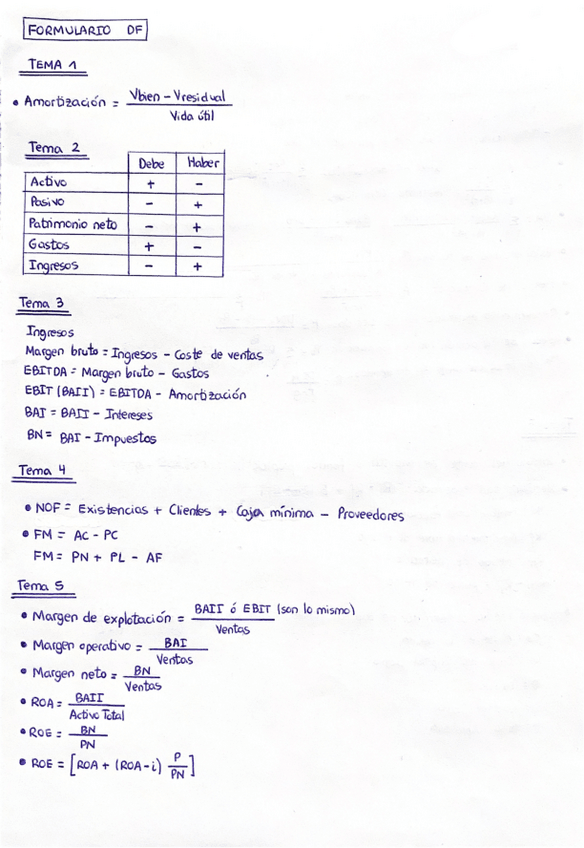 FORMULARIO DF
TEMA 1
• Amortización = (Vbien - Vresidual) / Vida útil
Tema 2
Debe Haber
Activo + -
Pasivo - +
Patrimonio neto - +
Gastos + -
Ingresos - +
Tema 3
Ingresos
Margen bruto = Ingresos - Coste de ventas
EBITDA = Margen bruto - Gastos
EBIT (BAII) = EBITDA - Amortización
BAI = BAII - Intereses
BN = BAI - Impuestos
Tema 4
• NOF = Existencias + Clientes + Caja mínima - Proveedores
• FM = AC - PC
FM = PN + PL - AF
Tema 5
• Margen de explotación = BAII ó EBIT (son lo mismo) / Ventas
• Margen operativo = BAI / Ventas
• Margen neto = BN / Ventas
• ROA = BAII / Activo Total
• ROE = BN / PN
• ROE = [ROA + (ROA - i) P / PN]